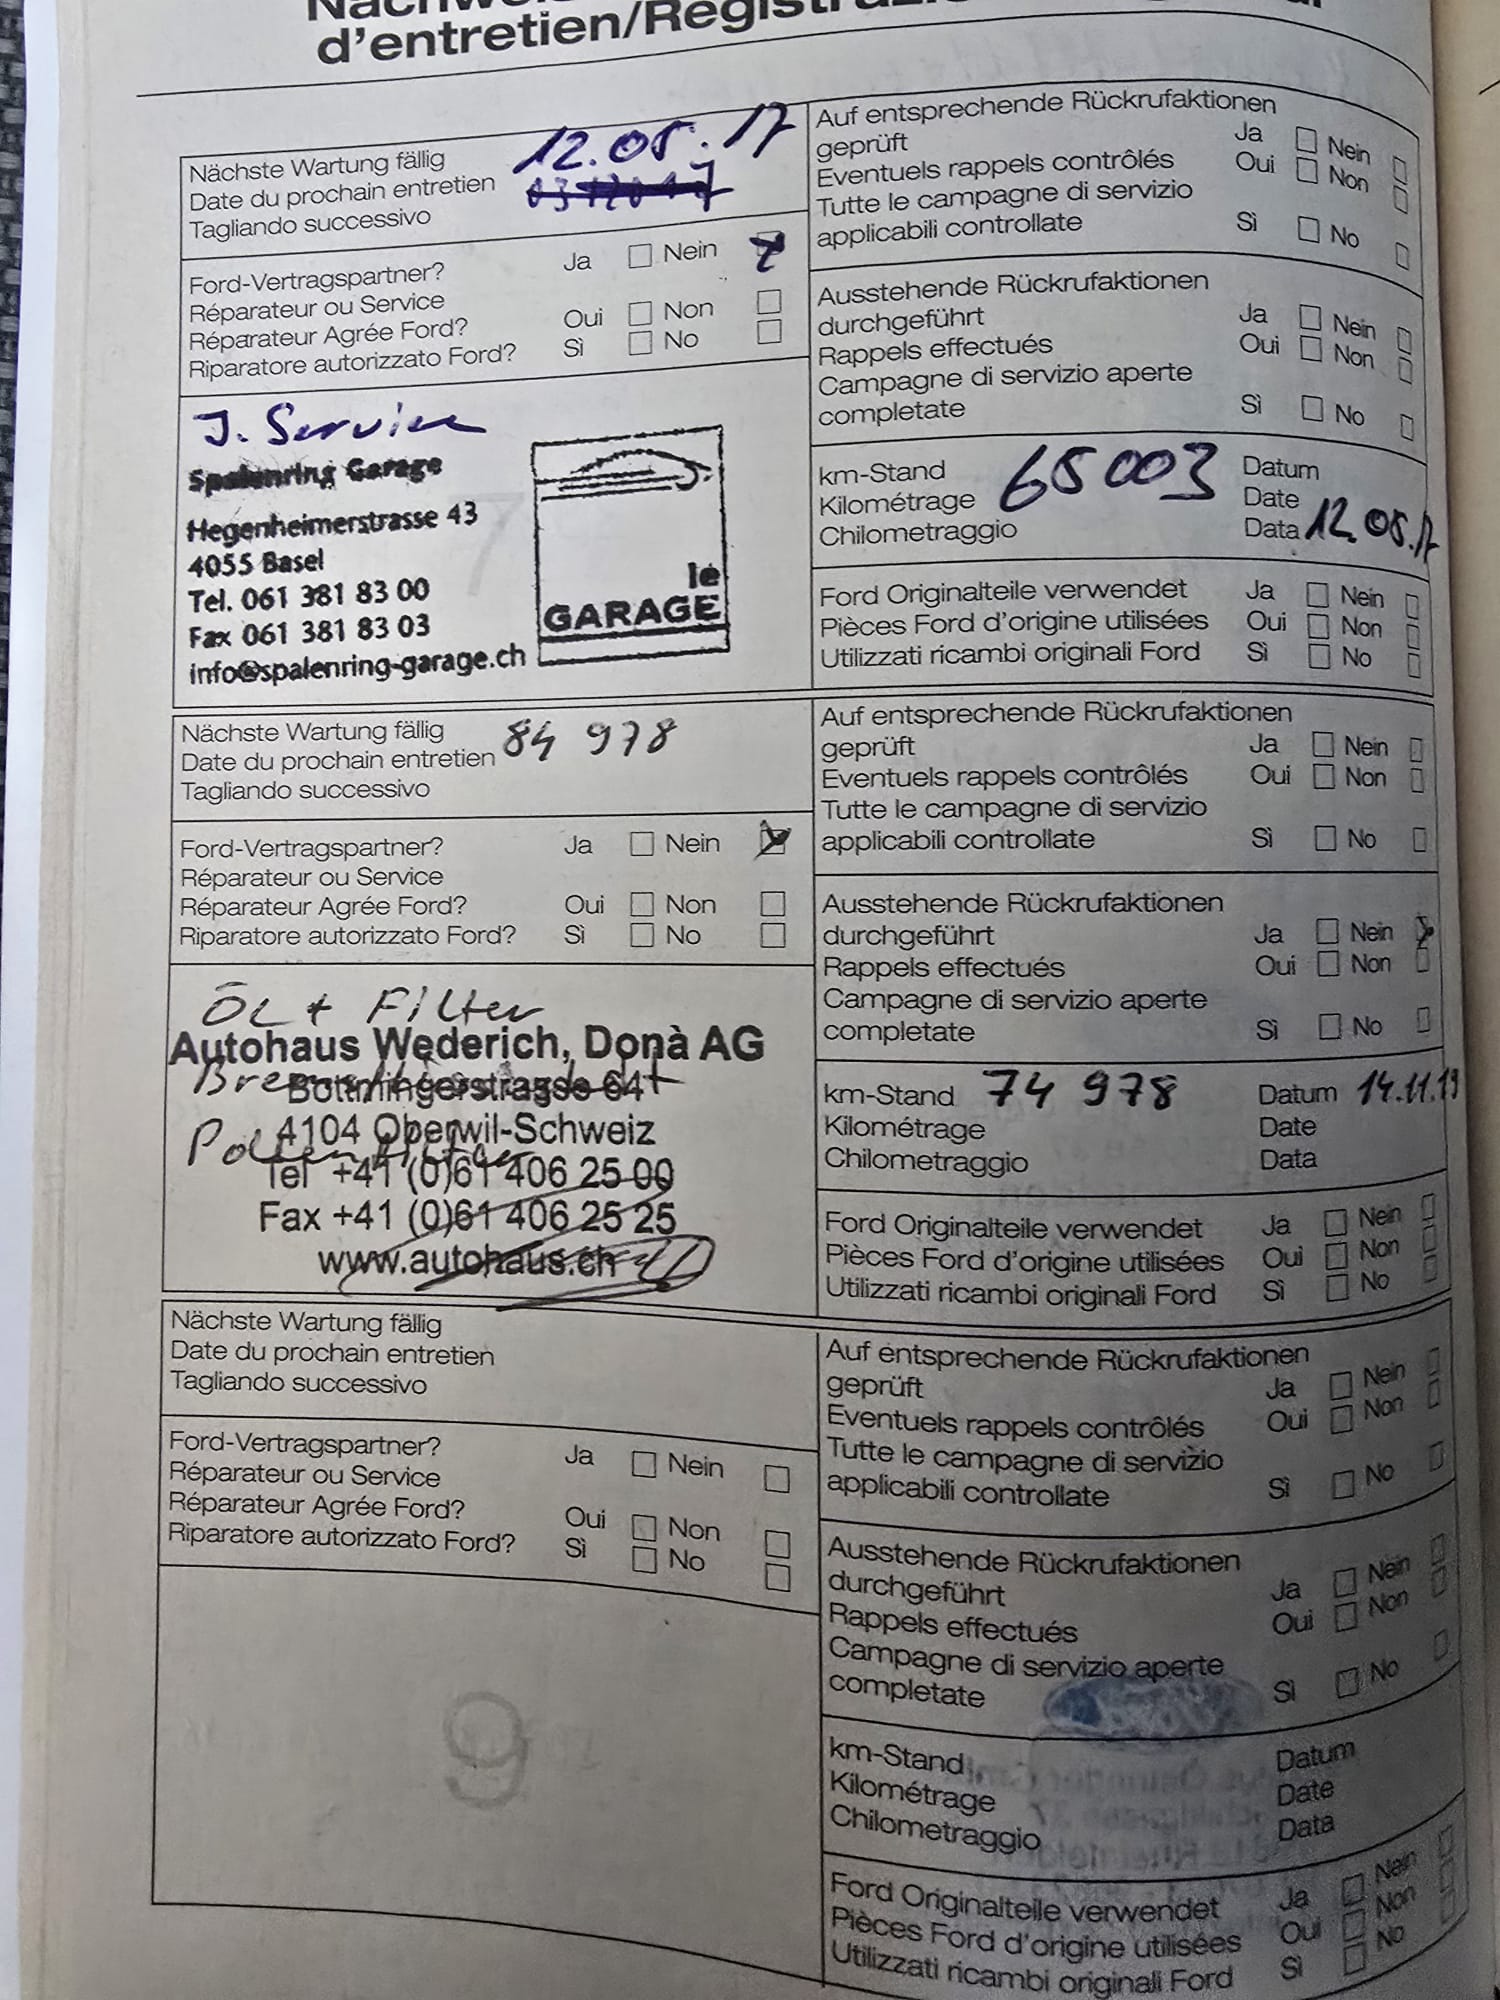 d'entretien/Registrazione
Nächste Wartung fällig 12.05.17
Date du prochain entretien
Tagliando successivo
Ford-Vertragspartner? Ja Nein
Réparateur ou Service
Réparateur Agrée Ford? Oui Non
Riparatore autorizzato Ford? Sì No
J. Service
Spalenring Garage
Hegenheimerstrasse 43
4055 Basel
Tel. 061 381 83 00
Fax 061 381 83 03
info@spalenring-garage.ch
le
GARAGE
Auf entsprechende Rückrufaktionen
geprüft Ja Nein
Eventuels rappels contrôlés Oui Non
Tutte le campagne di servizio
applicabili controllate Sì No
Ausstehende Rückrufaktionen
durchgeführt Ja Nein
Rappels effectués Oui Non
Campagne di servizio aperte
completate Sì No
km-Stand 65003 Datum
Kilométrage Date
Chilometraggio Data 12.05.17
Ford Originalteile verwendet Ja Nein
Pièces Ford d'origine utilisées Oui Non
Utilizzati ricambi originali Ford Sì No
Nächste Wartung fällig 84 978
Date du prochain entretien
Tagliando successivo
Ford-Vertragspartner? Ja Nein
Réparateur ou Service
Réparateur Agrée Ford? Oui Non
Riparatore autorizzato Ford? Sì No
ÖL + Filter
Autohaus Wederich, Donà AG
Bottmingerstrasse 64
4104 Oberwil-Schweiz
Pollenfilter
Tel +41 (0)61 406 25 00
Fax +41 (0)61 406 25 25
www.autohaus.ch
Auf entsprechende Rückrufaktionen
geprüft Ja Nein
Eventuels rappels contrôlés Oui Non
Tutte le campagne di servizio
applicabili controllate Sì No
Ausstehende Rückrufaktionen
durchgeführt Ja Nein
Rappels effectués Oui Non
Campagne di servizio aperte
completate Sì No
km-Stand 74 978 Datum 14.11.19
Kilométrage Date
Chilometraggio Data
Ford Originalteile verwendet Ja Nein
Pièces Ford d'origine utilisées Oui Non
Utilizzati ricambi originali Ford Sì No
Nächste Wartung fällig
Date du prochain entretien
Tagliando successivo
Ford-Vertragspartner? Ja Nein
Réparateur ou Service
Réparateur Agrée Ford? Oui Non
Riparatore autorizzato Ford? Sì No
9
Auf entsprechende Rückrufaktionen
geprüft Ja Nein
Eventuels rappels contrôlés Oui Non
Tutte le campagne di servizio
applicabili controllate Sì No
Ausstehende Rückrufaktionen
durchgeführt Ja Nein
Rappels effectués Oui Non
Campagne di servizio aperte
completate Sì No
km-Stand Datum
Kilométrage Date
Chilometraggio Data
Ford Originalteile verwendet Ja Nein
Pièces Ford d'origine utilisées Oui Non
Utilizzati ricambi originali Ford Sì No